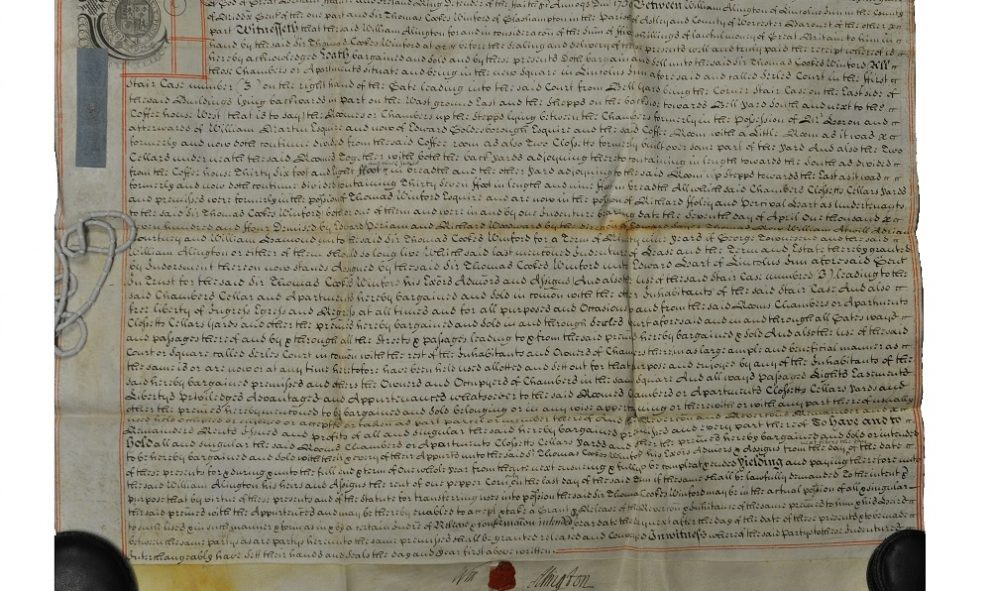 Between William Alington of Lincolns Inn in the County
of the one part and Sir Thomas Cookes Winford of Glashampton in the Parish of Astley and County of Worcester Baronet of the other
part Witnesseth that the said William Alington for and in consideracon of the sum of five shillings of lawfull money of Great Britain to him in
hand by the said Sir Thomas Cookes Winford at or before the sealing and delivery of these presents well and truly paid the receipt whereof is
hereby acknowledged Hath bargained and sold and by these presents Doth bargain and sell unto the said Sir Thomas Cookes Winford All
those Chambers or Apartments situate and being in the new Square in Lincolns Inn aforesaid and called Serles Court in the first
Stair Case number 3 on the right hand of the Gate leading into the said Court from Bell Yard being the Corner Stair Case on the East side of
the said Buildings lying backwards in part on the Wast ground East and the Shopps on the backside towards Bell Yard South and next to the
Coffee house West that is to say the Roomes or Chambers up the Stepps lying between the Chambers formerly in the Possession of
afterwards of William Martin Esquire and now of Edward Goldesborough Esquire and the said Coffee Room with a little Room as it was
formerly and now doth continue divided from the said Coffee room as also Two Clossetts formerly built over some part of the Yard And also the Two
Cellars underneath the said Rooms Together with both the back Yards adjoyning thereto containing in length towards the South as divided
from the Coffee house Thirty six foot and Eight foot in breadth and the other Yard adjoyning to the said Room up Stepps towards the East as it was
formerly and now doth continue divided containing Thirty seven foot in length and nine foot in breadth All which said Chambers Clossetts Cellars Yards
and premisses were formerly in the possession of Thomas Winford Esquire and are now in the possion of Richard Foley and Percival Hart as Undertenants
to the said Sir Thomas Cookes Winford both or one of them and were in and by one Indenture bearing date the seventh day of April One thousand
seven hundred and four Demised by
Courtney and William unto the said Sir Thomas Cookes Winford for a Term of Ninety nine years if George Townesend and the said
William Alington or either of them should so long live Which said last mentioned Indenture of Lease and the Term and Estate thereby granted
by Indorsment thereon now stands assigned by the said Sir Thomas Cookes Winford unto Edward of Lincolns Inn aforesaid Gent
In Trust for the said Sir Thomas Cookes Winford his Exors Admors and Assignes And also the use of the said Stair Case numbered 3 leading to the
said Chambers Cellar and Apartments hereby bargained and sold in comon with the other Inhabitants of the said Stair Case And also
free liberty of Ingress Egress and Regress at all times and for all purposes and Occasions to and from the said Rooms Chambers or Apartments
Clossetts Cellars Yards and other the premes hereby bargained and sold in and through Serles Court aforesaid and in and through all Gates ways
and passages thereof and by & through all the Streets & passages leading to & from the said premes hereby bargained & sold And also the use of the said
Court or Square called Serles Court in comon with the rest of the Inhabitants and Owners of Chambers therein as large ample and beneficial manner as
the same is or are now or at any time heretofore have been held used allotted and set out for that purpose and enjoyed by any of the Inhabitants of the
said hereby bargained premisses and others the Owners and Occupyers of Chambers in the said Square And all ways Passages Rights Easements
Libertys Priviledges Advantages and Appurtenances whatsoever to the said Roomes Chambers or Apartments Clossetts Cellars Yards and
other the premes hereby mentioned to be bargained and sold belonging or in any wise appertaining or therewith or with any part thereof usually
held occupied or enjoyed or accepted or taken as part parcel or member thereof And the Reversion and Reversions Remainder and
Remainders Rents Issues and profits of all and singular the said hereby bargained premisses and every part thereof To have and to
hold all and singular the said Rooms Chambers or Apartments Clossetts Cellars Yards and other the premes hereby bargained and sold or intended
to be hereby bargained and sold with their & every of their Appurts unto the said Sr Thomas Cookes Winford his Exors Admors & Assigns from the day of the date
of these presents for & during & unto the full end & term of one whole year from thence next ensuing & fully to be compleat & ended Yielding and paying therefore unto
the said William Alington his heirs and Assigns the rent of one pepper Corn on the last day of the said Term if the same shall be lawfully demanded To the intent &
purpose that by virtue of these presents and of the Statute for transferring uses into possion the said Sir Thomas Cookes Winford may be in the actual possion of all & singular
the said premes with the Appurtenances and may be thereby enabled to accept & take a Grant & Release of the Reversion & Inheritance of the same premes to him & his heirs
to such uses & in such manner & form as in & by a certain Indre of Release & confirmation intended to bear date the day next after the day of the date of these presents & to be made
between the same partys as are partys hereunto the same premisses shall be granted released and conveyed In witness whereof the said Partys to these Indentures
Interchangeably have sett their hands and seals the day and year first above written
Wm Alington